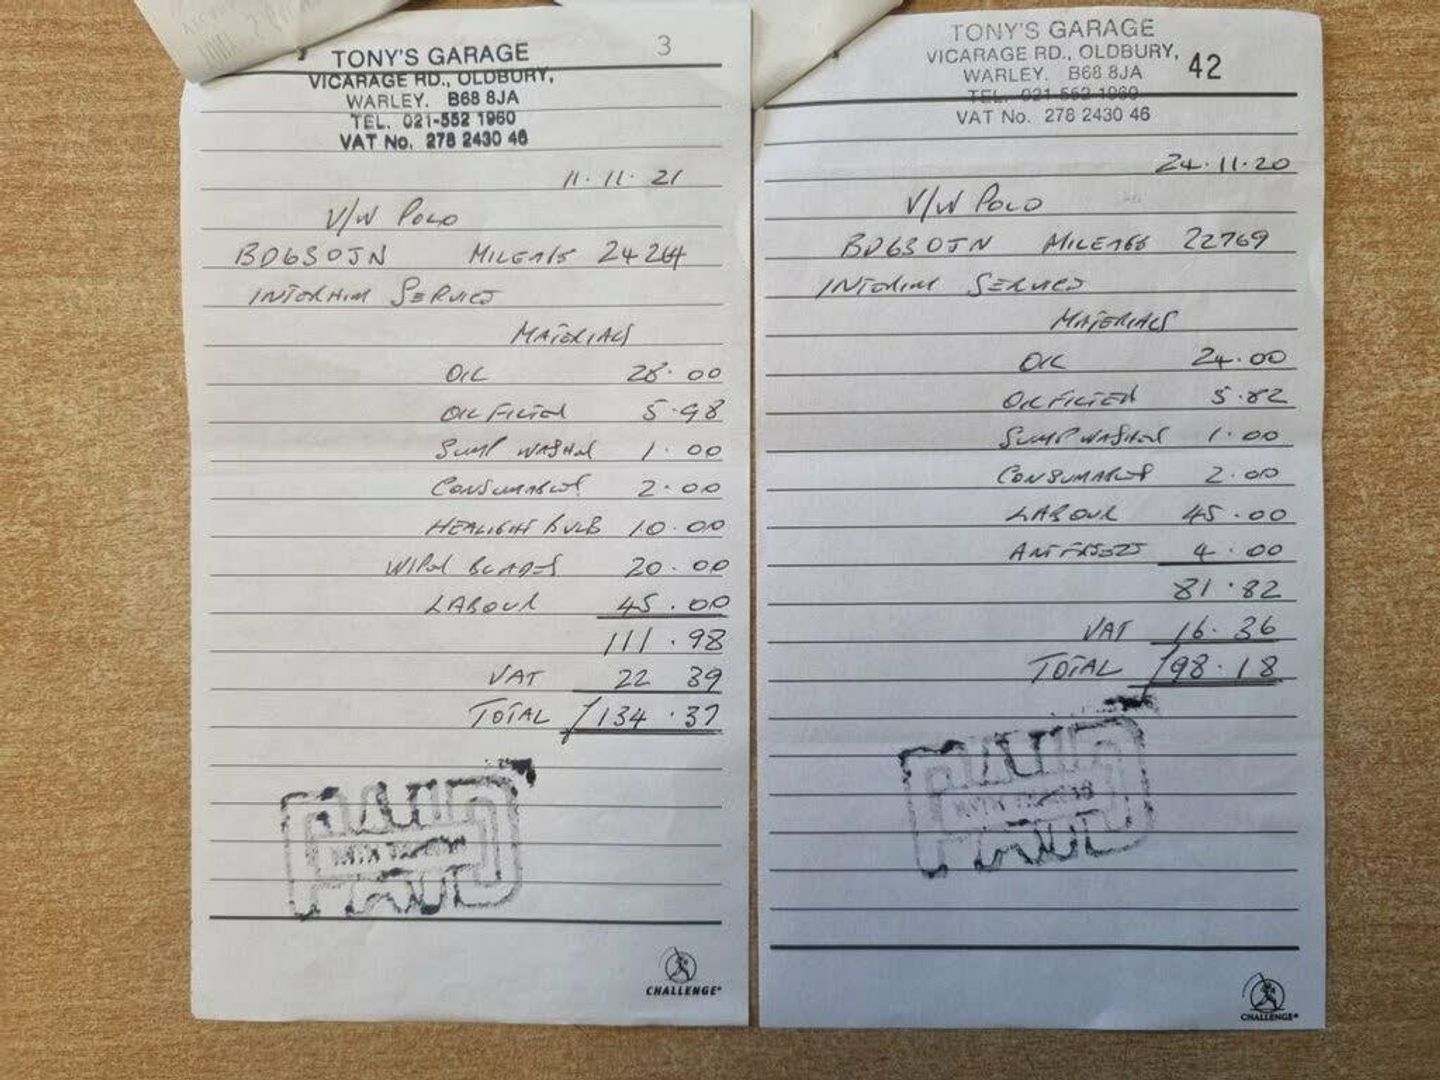 TONY'S GARAGE 3
VICARAGE RD., OLDBURY,
WARLEY. B68 8JA
TEL. 021-552 1960
VAT No. 278 2430 46
11.11.21
V/W POLO
BD63OJN MILEAGE 24264
INTERIM SERVICE
MATERIALS
OIL 28.00
OIL FILTER 5.98
SUMP WASHER 1.00
CONSUMABLES 2.00
HEALIGHT BULB 10.00
WIPER BLADES 20.00
LABOUR 45.00
111.98
VAT 22 39
TOTAL 134.37
PAID
CHALLENGE®
TONY'S GARAGE
VICARAGE RD., OLDBURY,
WARLEY. B68 8JA 42
TEL. 021-552 1960
VAT No. 278 2430 46
24.11.20
V/W POLO
BD63OJN MILEAGE 22769
INTERIM SERVICE
MATERIALS
OIL 24.00
OIL FILTER 5.82
SUMP WASHER 1.00
CONSUMABLES 2.00
LABOUR 45.00
ANTIFREEZE 4.00
81.82
VAT 16.36
TOTAL 98.18
PAID
CHALLENGE®